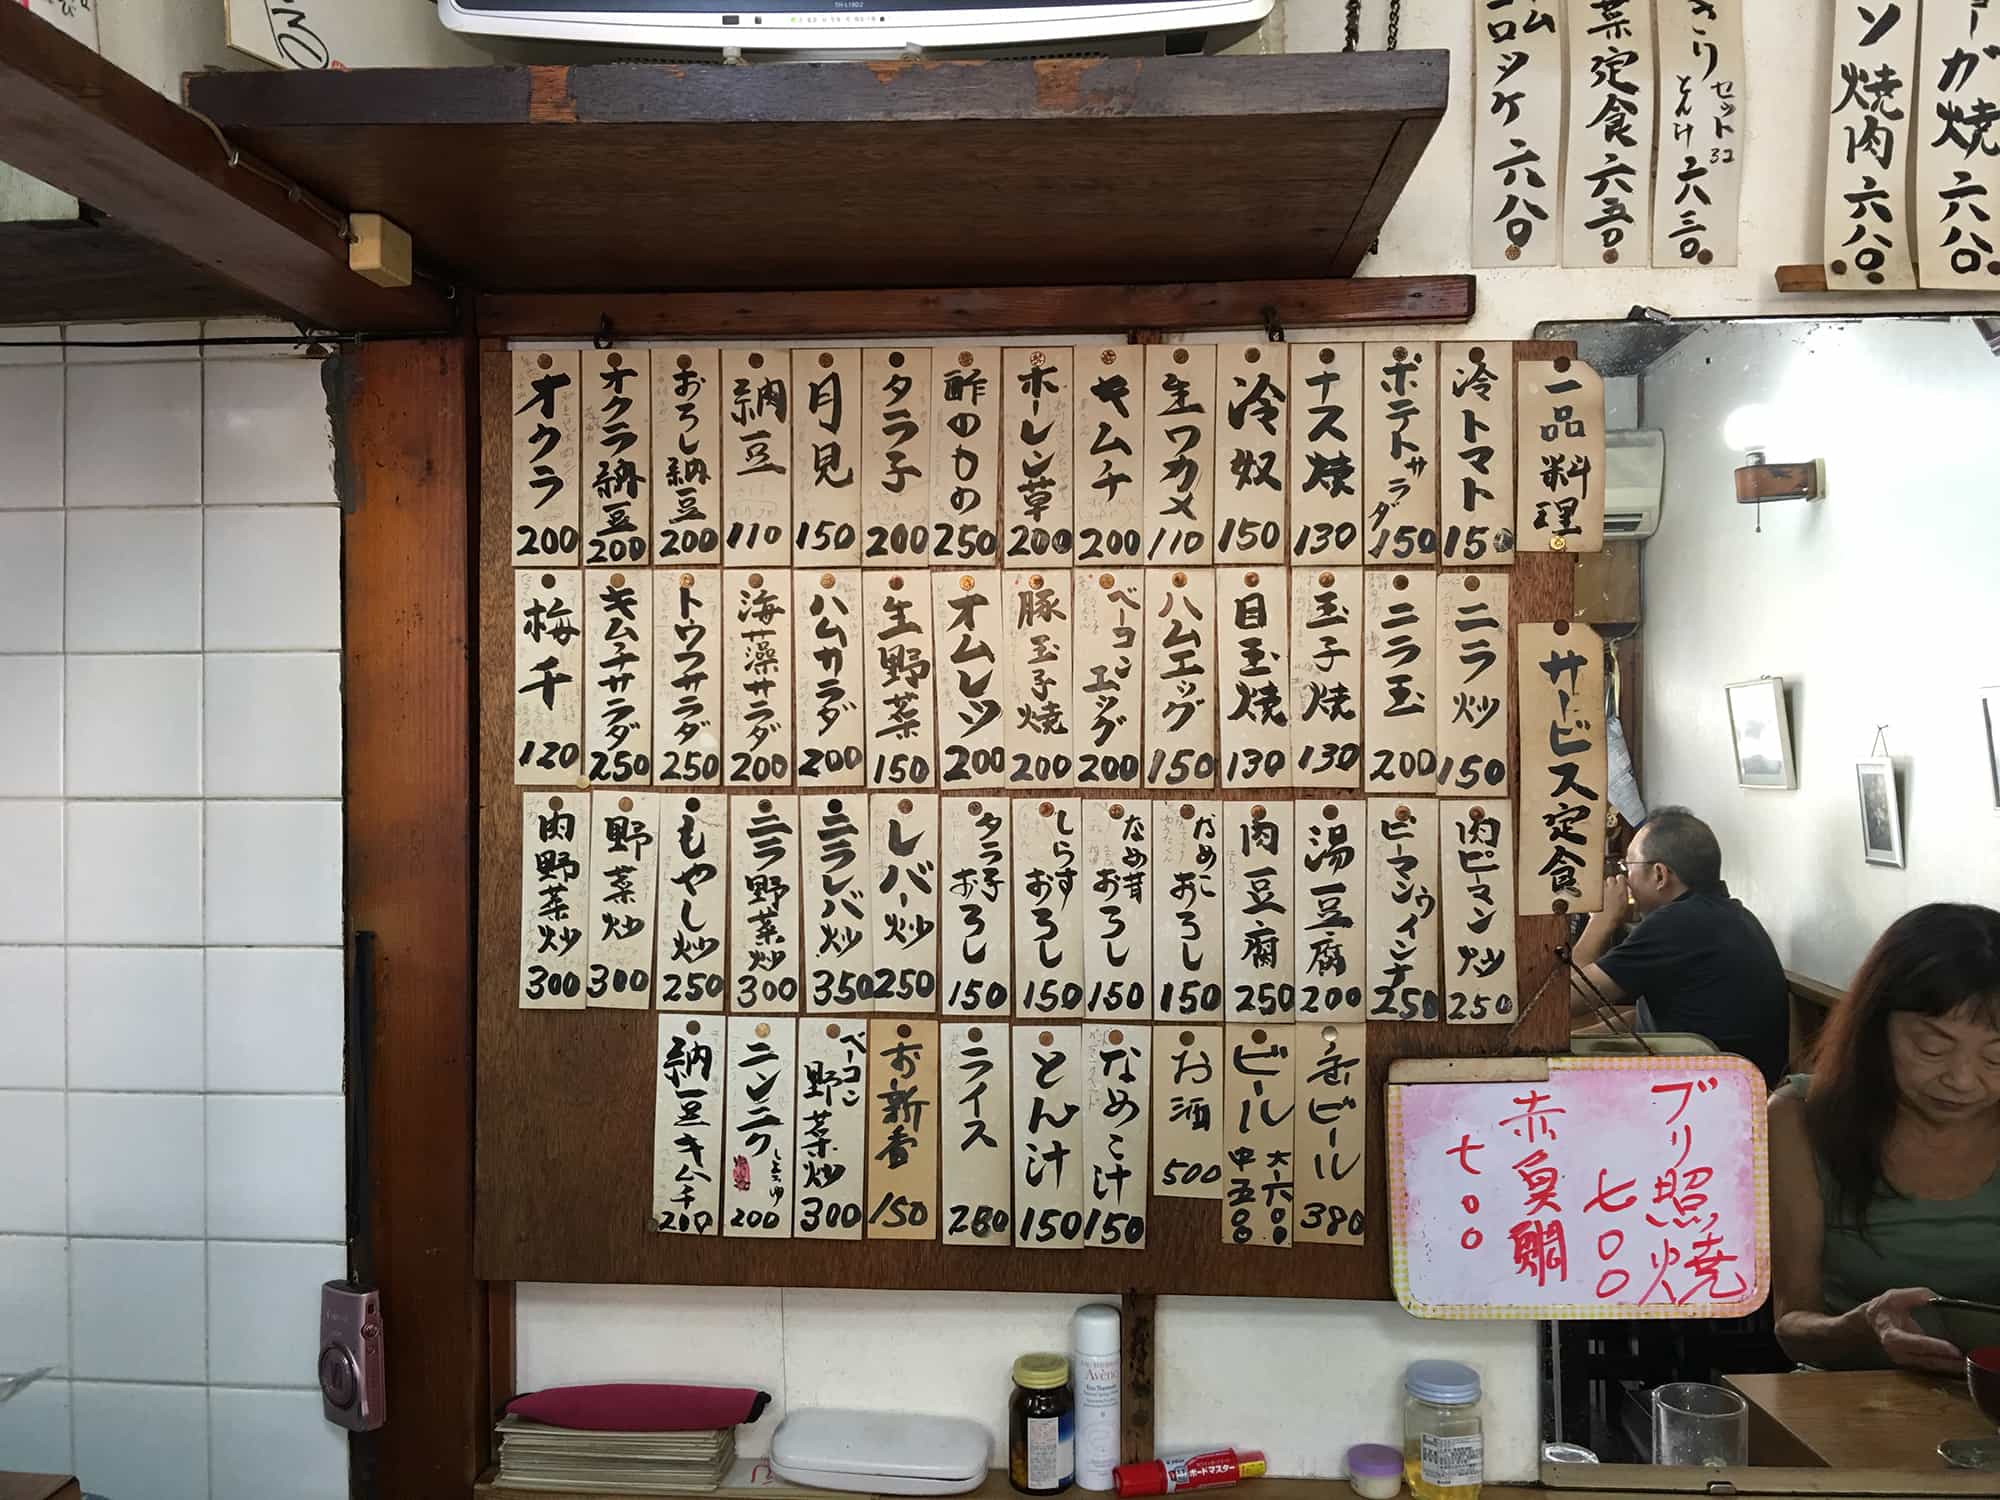 TH-L19D2
ロッケ 六八〇
菜定食 六五〇
きり
セット32
とん汁
六三〇
ソ焼肉 六八〇
ーガ焼 六八〇
一品料理
冷トマト 150
ポテトサラダ 150
ナス焼 130
冷奴 150
生ワカメ 110
キムチ 200
ホーレン草 200
酢のもの 250
タラ子 200
月見 150
納豆 110
おろし納豆 200
オクラ納豆 200
オクラ 200
サービス定食
ニラ炒 150
ニラ玉 200
玉子焼 130
目玉焼 130
ハムエッグ 150
ベーコンエッグ 200
豚玉子焼 200
オムレツ 200
生野菜 150
ハムサラダ 200
海藻サラダ 200
トウフサラダ 250
キムチサラダ 250
梅干 120
肉ピーマン炒 250
ピーマンウインナ 250
湯豆腐 200
肉豆腐 250
なめこおろし 150
なめ茸おろし 150
しらすおろし 150
タラ子おろし 150
レバー炒 250
ニラレバ炒 350
ニラ野菜炒 300
もやし炒 250
野菜炒 300
肉野菜炒 300
缶ビール 380
ビール 大-六〇〇 中五〇〇
お酒 500
なめこ汁 150
とん汁 150
ライス 200
お新香 150
ベーコン野菜炒 300
ニンニクしょうゆ 200
納豆キムチ 200
ブリ照焼
七〇〇
赤魚鯛
七〇〇
Avène
Eau Thermale
ボードマスター
Canon